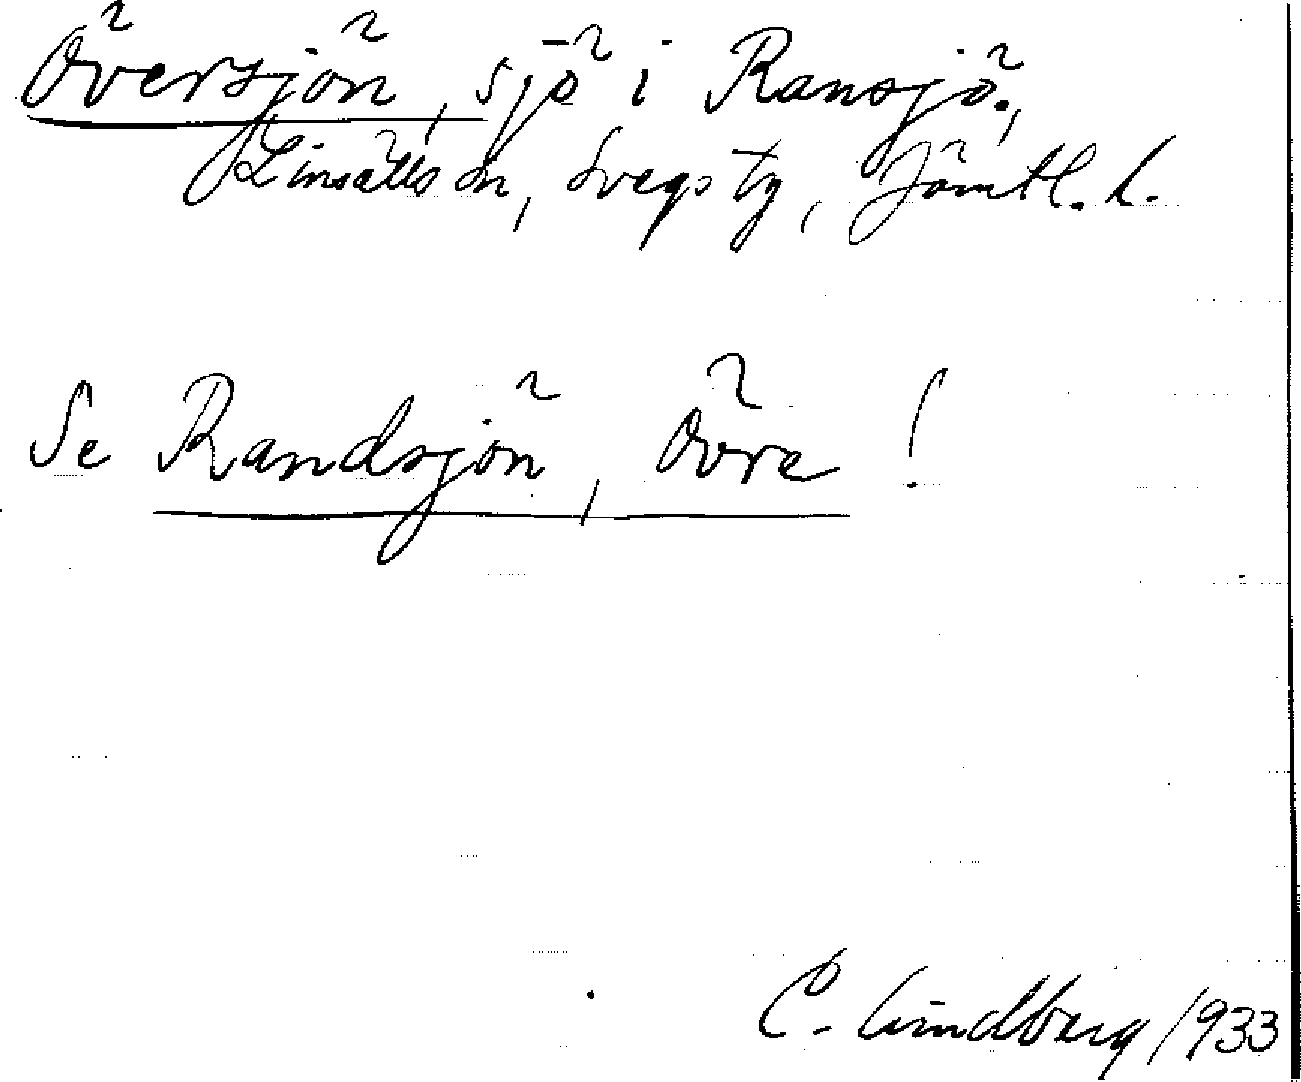 Översjön, sjö i Ransjö,
Linsälls sn, Svegs tg, Jämtl. l.
Se Randsjön, Övre !
C. Lindberg 1933